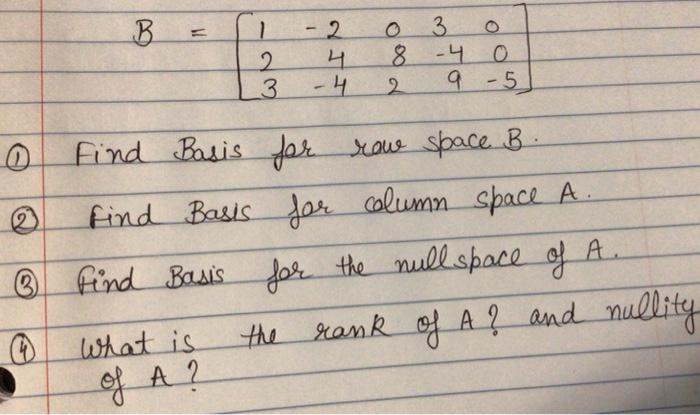 B = [ 1 -2 0 3 0
2 4 8 -4 0
3 -4 2 9 -5 ]
① Find Basis for row space B.
② Find Basis for column space A.
③ find Basis for the nullspace of A.
④ What is the rank of A? and nullity
of A?